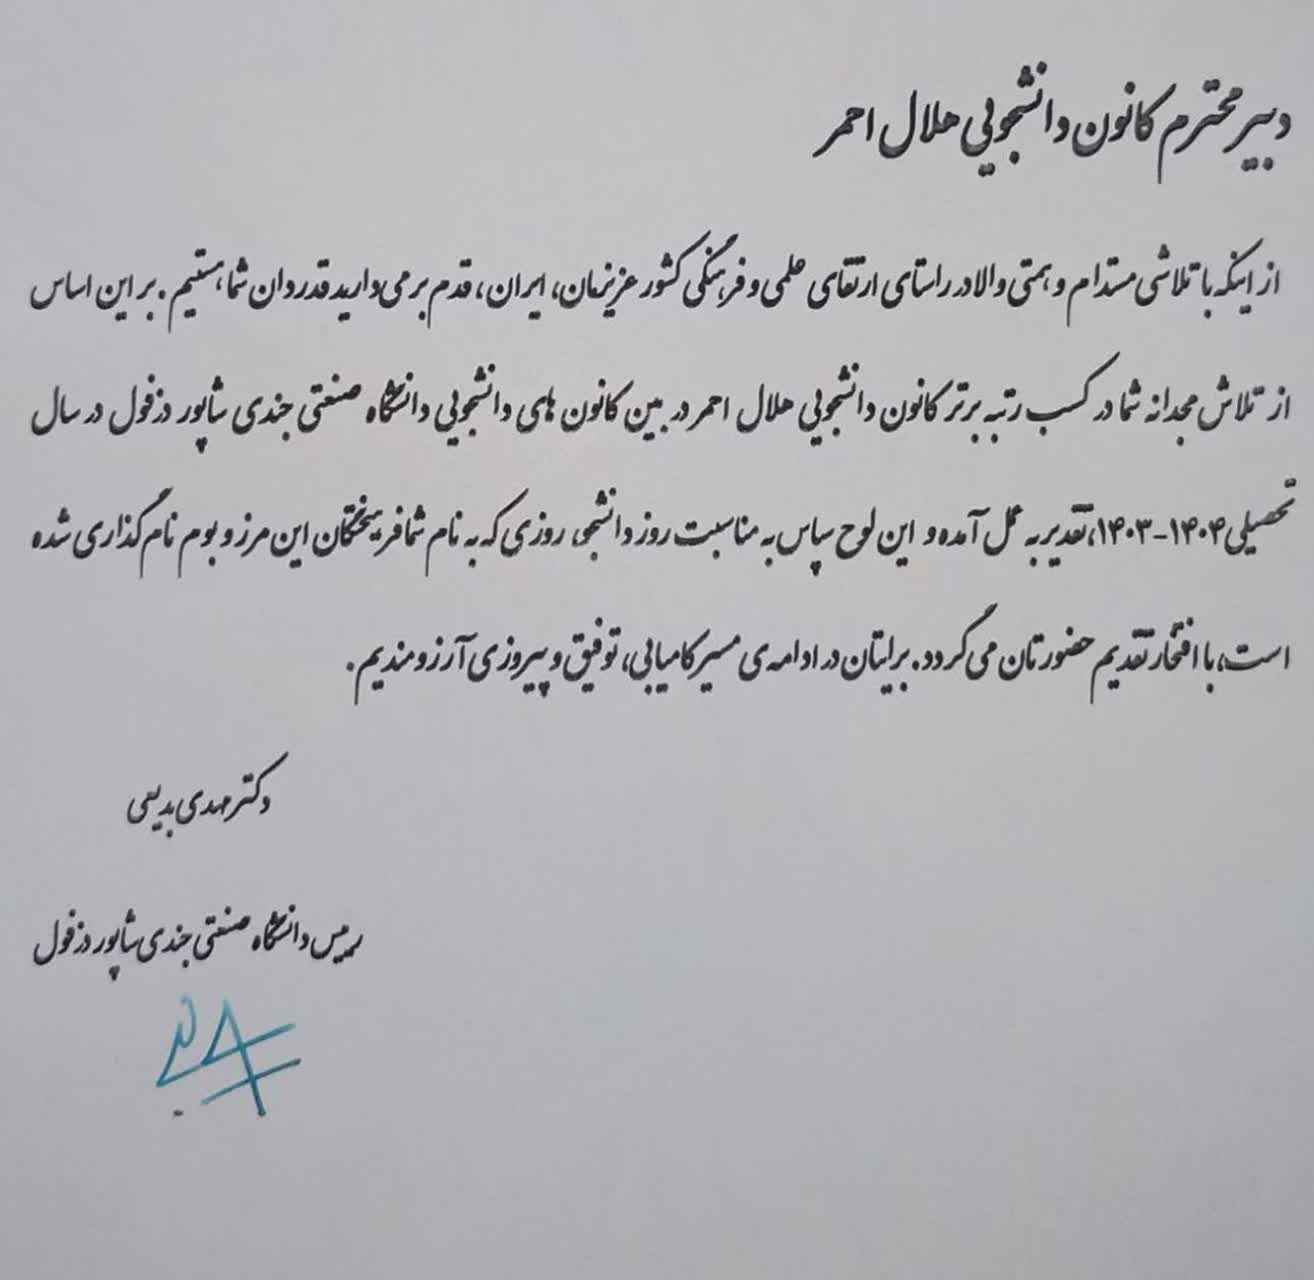 دبیر محترم کانون دانشجویی هلال احمر
از اینکه با تلاشی مستدام و همتی والا در راستای ارتقای علمی و فرهنگی کشور عزیزمان، ایران، قدم بر می دارید قدردان شما هستیم. بر این اساس
از تلاش مجدانه شما در کسب رتبه برتر کانون دانشجویی هلال احمر در بین کانون های دانشجویی دانشگاه صنعتی جندی شاپور دزفول در سال
تحصیلی ۱۴۰۴-۱۴۰۳، تقدیر به عمل آمده و این لوح سپاس به مناسبت روز دانشجو، روزی که به نام شما فریختگان این مرز و بوم نام گذاری شده
است، با افتخار تقدیم حضورتان می گردد. برایتان در ادامه ی مسیر کامیابی، توفیق و پیروزی آرزومندیم.
دکتر مهدی بدیعی
رییس دانشگاه صنعتی جندی شاپور دزفول